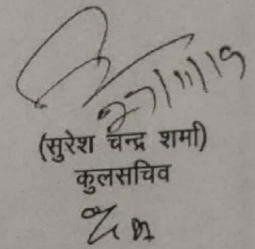 27/11/19
(सुरेश चन्द्र शर्मा)
कुलसचिव